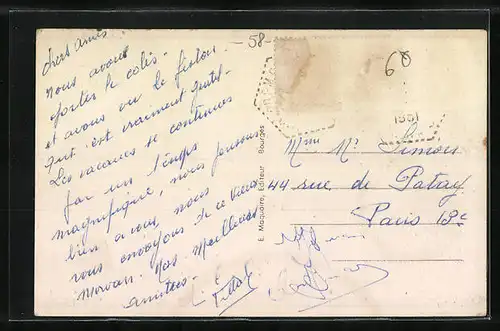 Chers amis.
nous avons
porter le colis.
et avons vu le fiston
tout est vraiment gentil.
Les vacances se continues
par un temps
magnifique, nous pensons
bien a vous. nous
vous envoyons de ce vieux
Morvan. Nos meilleures
amities.
58-
60
1951
Mme Mr Simon
44 rue de Patay
Paris 13e
E. Maquaire, Editeur, Bourges